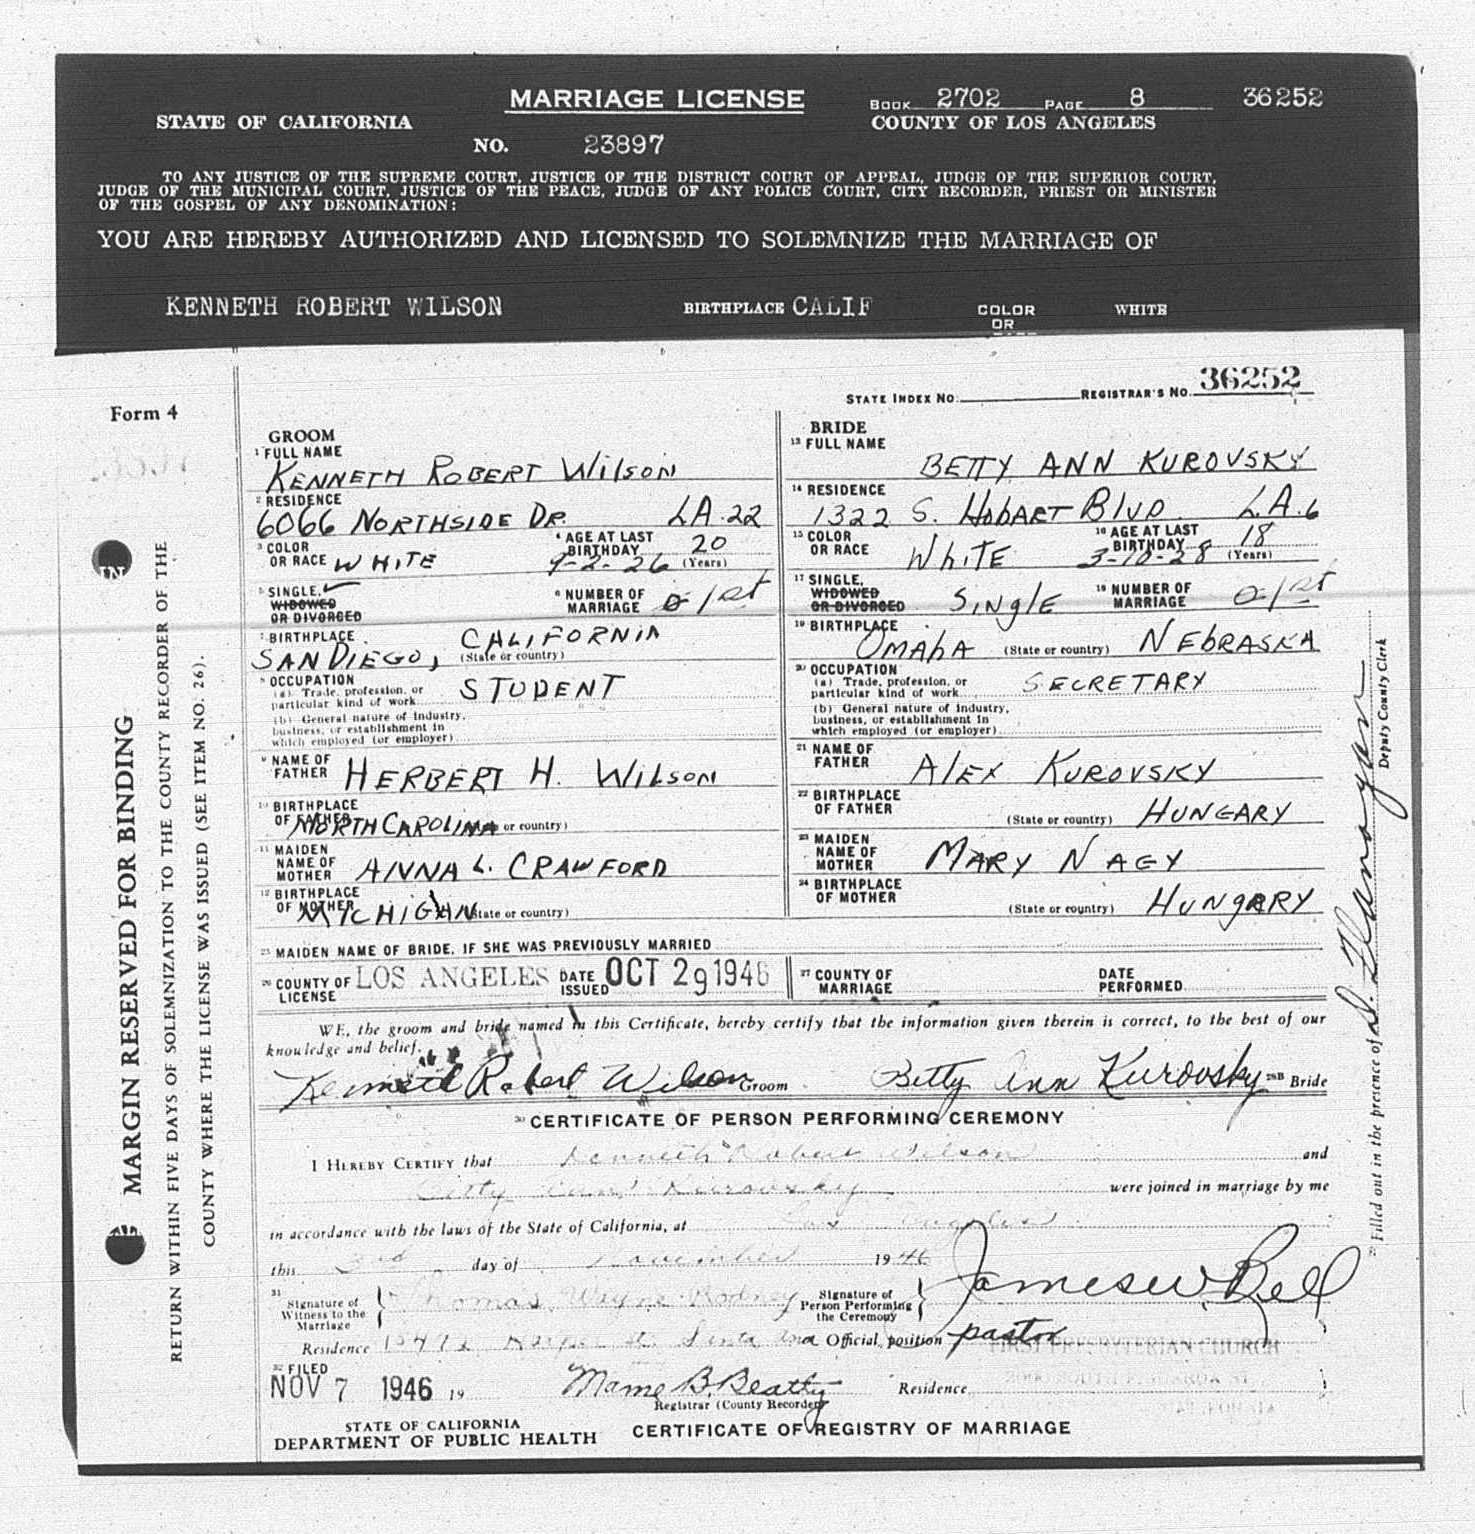 MARRIAGE LICENSE
BOOK 2702 PAGE 8 36252
STATE OF CALIFORNIA
COUNTY OF LOS ANGELES
NO. 23897
TO ANY JUSTICE OF THE SUPREME COURT, JUSTICE OF THE DISTRICT COURT OF APPEAL, JUDGE OF THE SUPERIOR COURT,
JUDGE OF THE MUNICIPAL COURT, JUSTICE OF THE PEACE, JUDGE OF ANY POLICE COURT, CITY RECORDER, PRIEST OR MINISTER
OF THE GOSPEL OF ANY DENOMINATION:
YOU ARE HEREBY AUTHORIZED AND LICENSED TO SOLEMNIZE THE MARRIAGE OF
KENNETH ROBERT WILSON BIRTHPLACE CALIF COLOR OR WHITE
Form 4
STATE INDEX NO. REGISTRAR'S NO. 36252
GROOM
1 FULL NAME
KENNETH ROBERT WILSON
2 RESIDENCE
6066 NORTHSIDE DR. LA. 22
3 COLOR OR RACE WHITE
4 AGE AT LAST BIRTHDAY 20 (Years)
9-2-26
5 SINGLE, WIDOWED OR DIVORCED
6 NUMBER OF MARRIAGE 0 1st
7 BIRTHPLACE
SAN DIEGO, CALIFORNIA
(State or country)
8 OCCUPATION
(a) Trade, profession, or particular kind of work STUDENT
(b) General nature of industry, business, or establishment in which employed (or employer)
9 NAME OF FATHER HERBERT H. WILSON
10 BIRTHPLACE OF FATHER NORTH CAROLINA or country)
11 MAIDEN NAME OF MOTHER ANNA L. CRAWFORD
12 BIRTHPLACE OF MOTHER MICHIGAN State or country)
BRIDE
13 FULL NAME
BETTY ANN KUROVSKY
14 RESIDENCE
1322 S. HOBART BLVD. L.A. 6
15 COLOR OR RACE WHITE
16 AGE AT LAST BIRTHDAY 18 (Years)
3-10-28
17 SINGLE, WIDOWED OR DIVORCED SINGLE
18 NUMBER OF MARRIAGE 0 1st
19 BIRTHPLACE
OMAHA (State or country) NEBRASKA
20 OCCUPATION
(a) Trade, profession, or particular kind of work SECRETARY
(b) General nature of industry, business, or establishment in which employed (or employer)
21 NAME OF FATHER ALEX KUROVSKY
22 BIRTHPLACE OF FATHER (State or country) HUNGARY
23 MAIDEN NAME OF MOTHER MARY NAGY
24 BIRTHPLACE OF MOTHER (State or country) HUNGARY
25 MAIDEN NAME OF BRIDE, IF SHE WAS PREVIOUSLY MARRIED
26 COUNTY OF LICENSE LOS ANGELES DATE ISSUED OCT 29 1946
27 COUNTY OF MARRIAGE DATE PERFORMED
WE, the groom and bride named in this Certificate, hereby certify that the information given therein is correct, to the best of our
knowledge and belief.
Kenneth Robert Wilson Groom Betty Ann Kurovsky 28B Bride
30 CERTIFICATE OF PERSON PERFORMING CEREMONY
I HEREBY CERTIFY that Kenneth Robert Wilson and
Betty Ann Kurovsky were joined in marriage by me
in accordance with the laws of the State of California, at Los Angeles
this 2nd day of November 1946
31 Signature of Witness to the Marriage Thomas Wayne Rodney
Signature of Person Performing the Ceremony James W. Bell
Residence Santa Ana Official position pastor
FIRST PRESBYTERIAN CHURCH
32 FILED
NOV 7 1946 19 Mame B. Beatty Residence
Registrar (County Recorder)
STATE OF CALIFORNIA
DEPARTMENT OF PUBLIC HEALTH
CERTIFICATE OF REGISTRY OF MARRIAGE
MARGIN RESERVED FOR BINDING
RETURN WITHIN FIVE DAYS OF SOLEMNIZATION TO THE COUNTY RECORDER OF THE
COUNTY WHERE THE LICENSE WAS ISSUED (SEE ITEM NO. 26).
29 Filled out in the presence of D. Flanagan
Deputy County Clerk